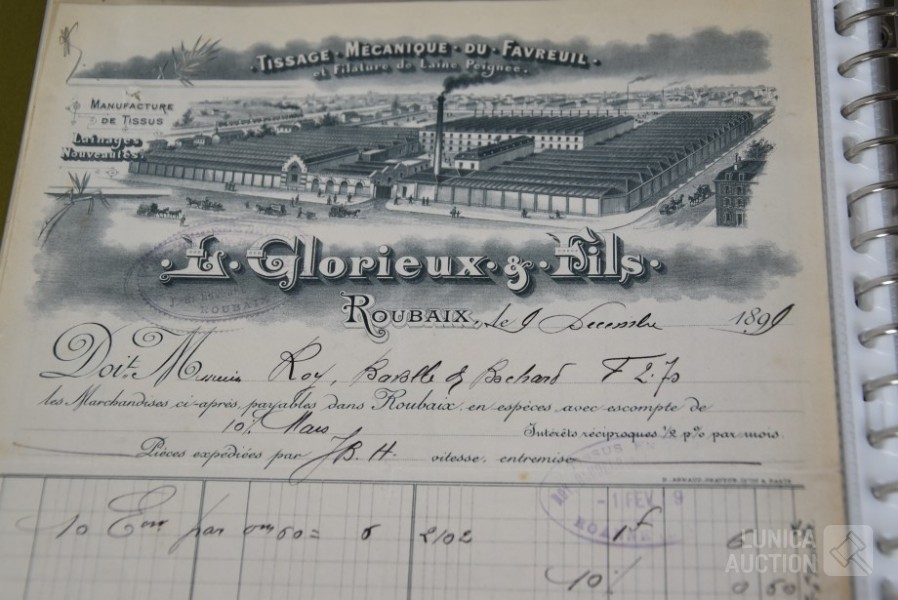 TISSAGE · MÉCANIQUE · DU · FAVREUIL ·
et Filature de Laine Peignée.
MANUFACTURE
DE TISSUS
Lainages
Nouveautés
· L. Glorieux · & · Fils ·
ROUBAIX
ROUBAIX, le 9 Decembre 1899
Doit M essieurs Roy, & Bochard F 2.70
les Marchandises ci-après, payables dans Roubaix, en espèces avec escompte de
10% Mars Intérêts réciproques ½ p% par mois.
Pièces expédiées par J B. H. vitesse, entremise
1 FEV 9
10 par 60 = 6 2102 1 f 6
10 % 0 60
LUNICA
AUCTION